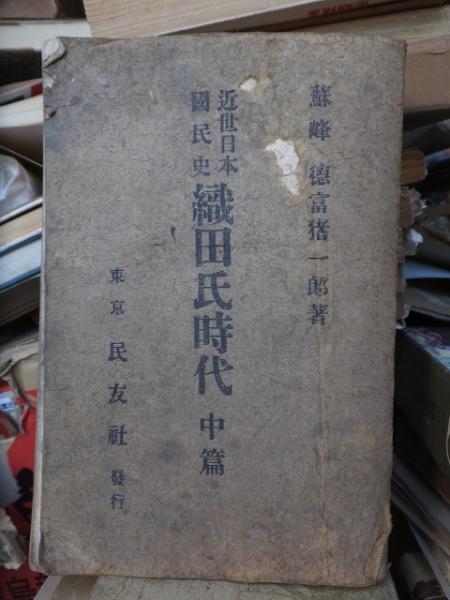 蘇峰 德富猪一郎著
近世日本
國民史
織田氏時代 中篇
東京 民友社 發行